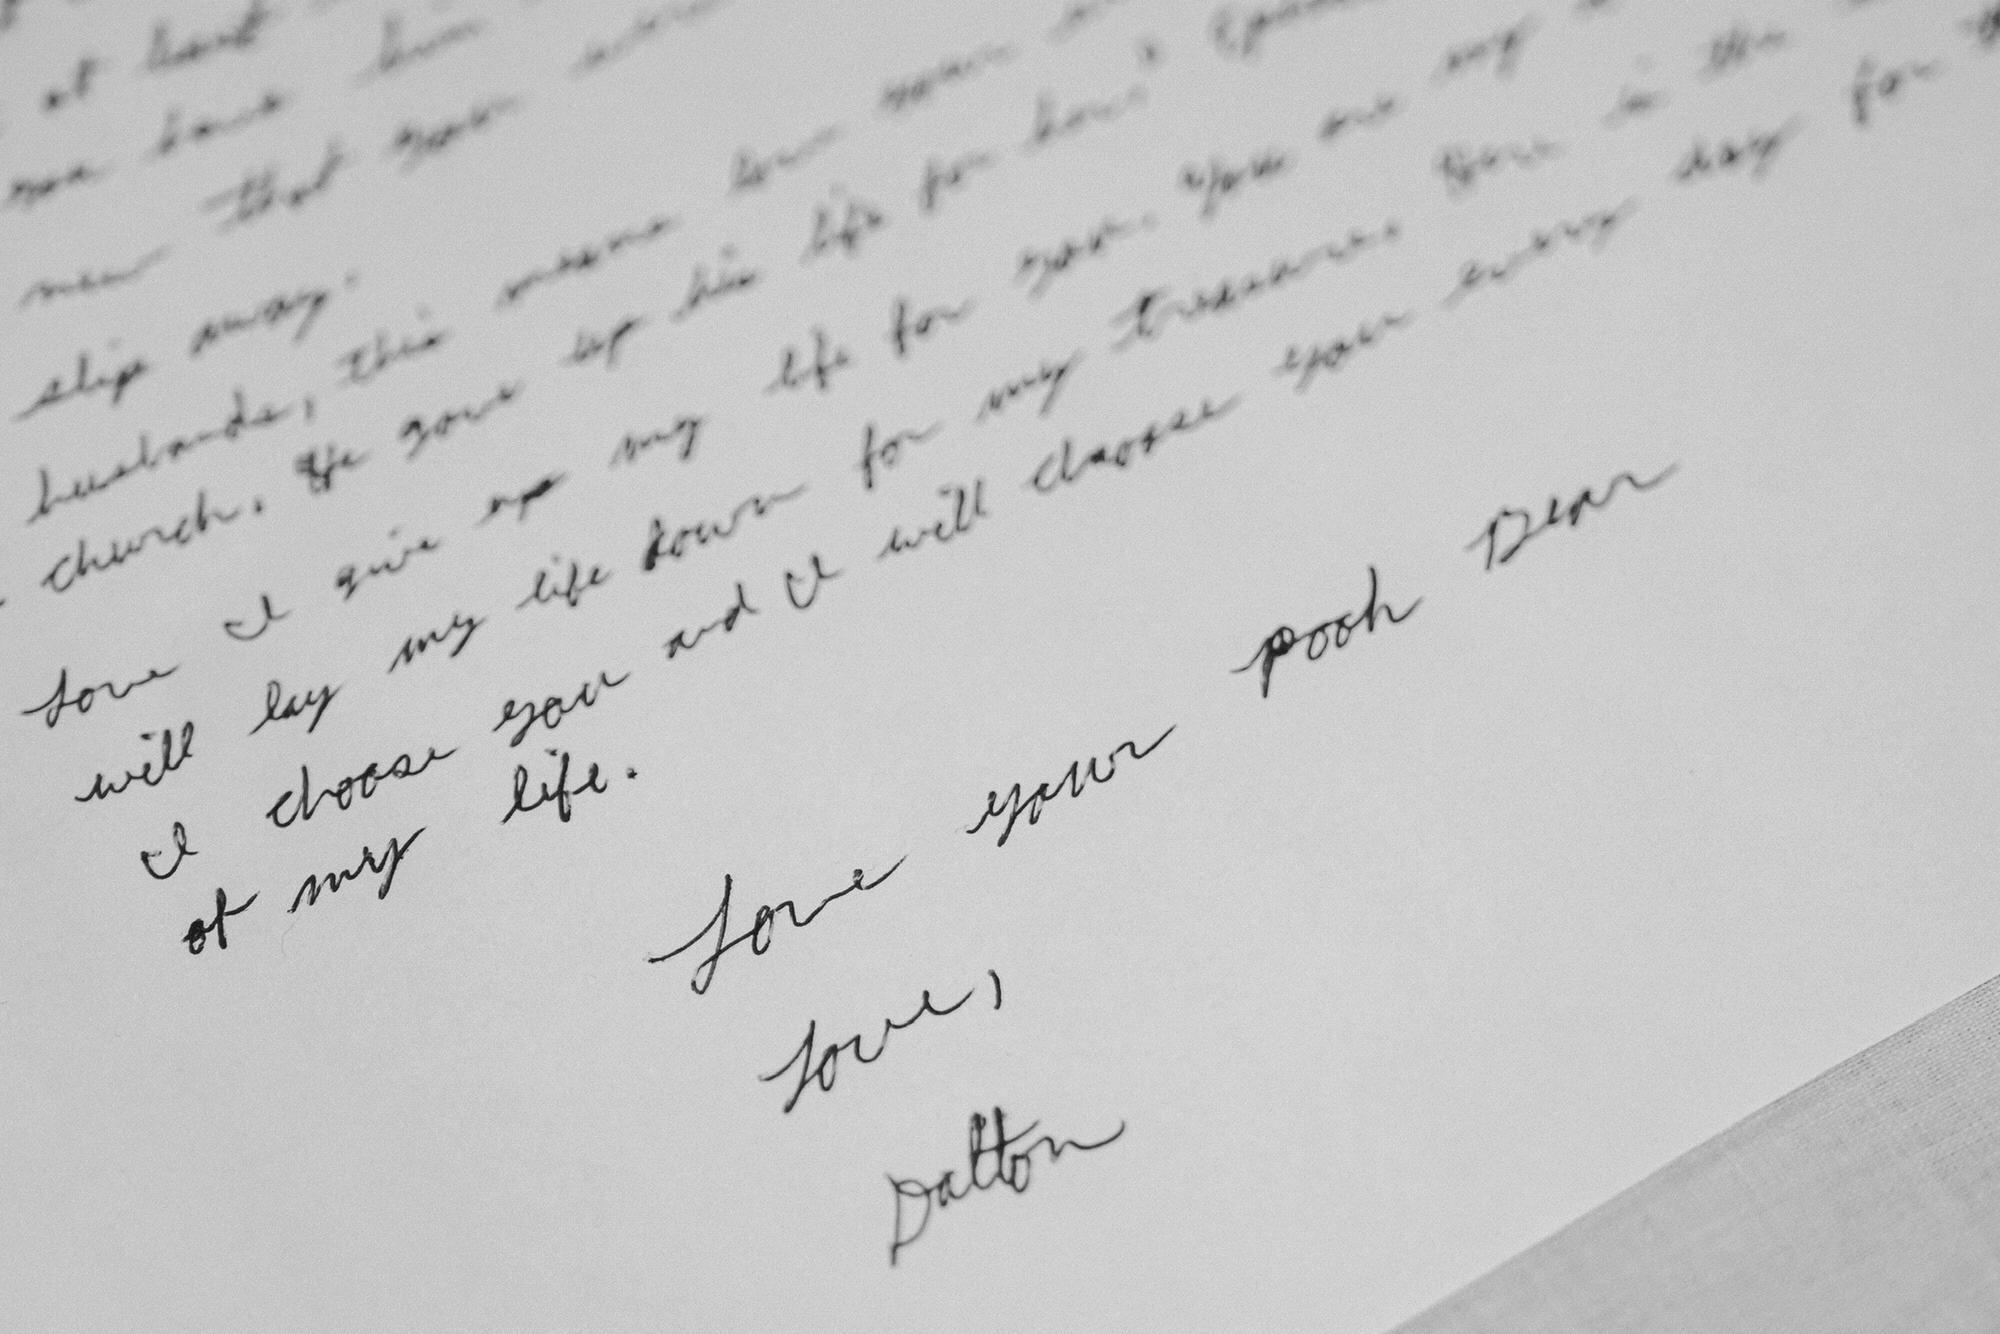 at least
you have
new that your
slip away.
husbands, this means love your
church. He gave up his life for her" (
Love I give up my life for you. You are my
will lay my life down for my treasure. Here in the
I choose you and I will choose you every day for
of my life.
Love your Pooh Bear
Love,
Dalton